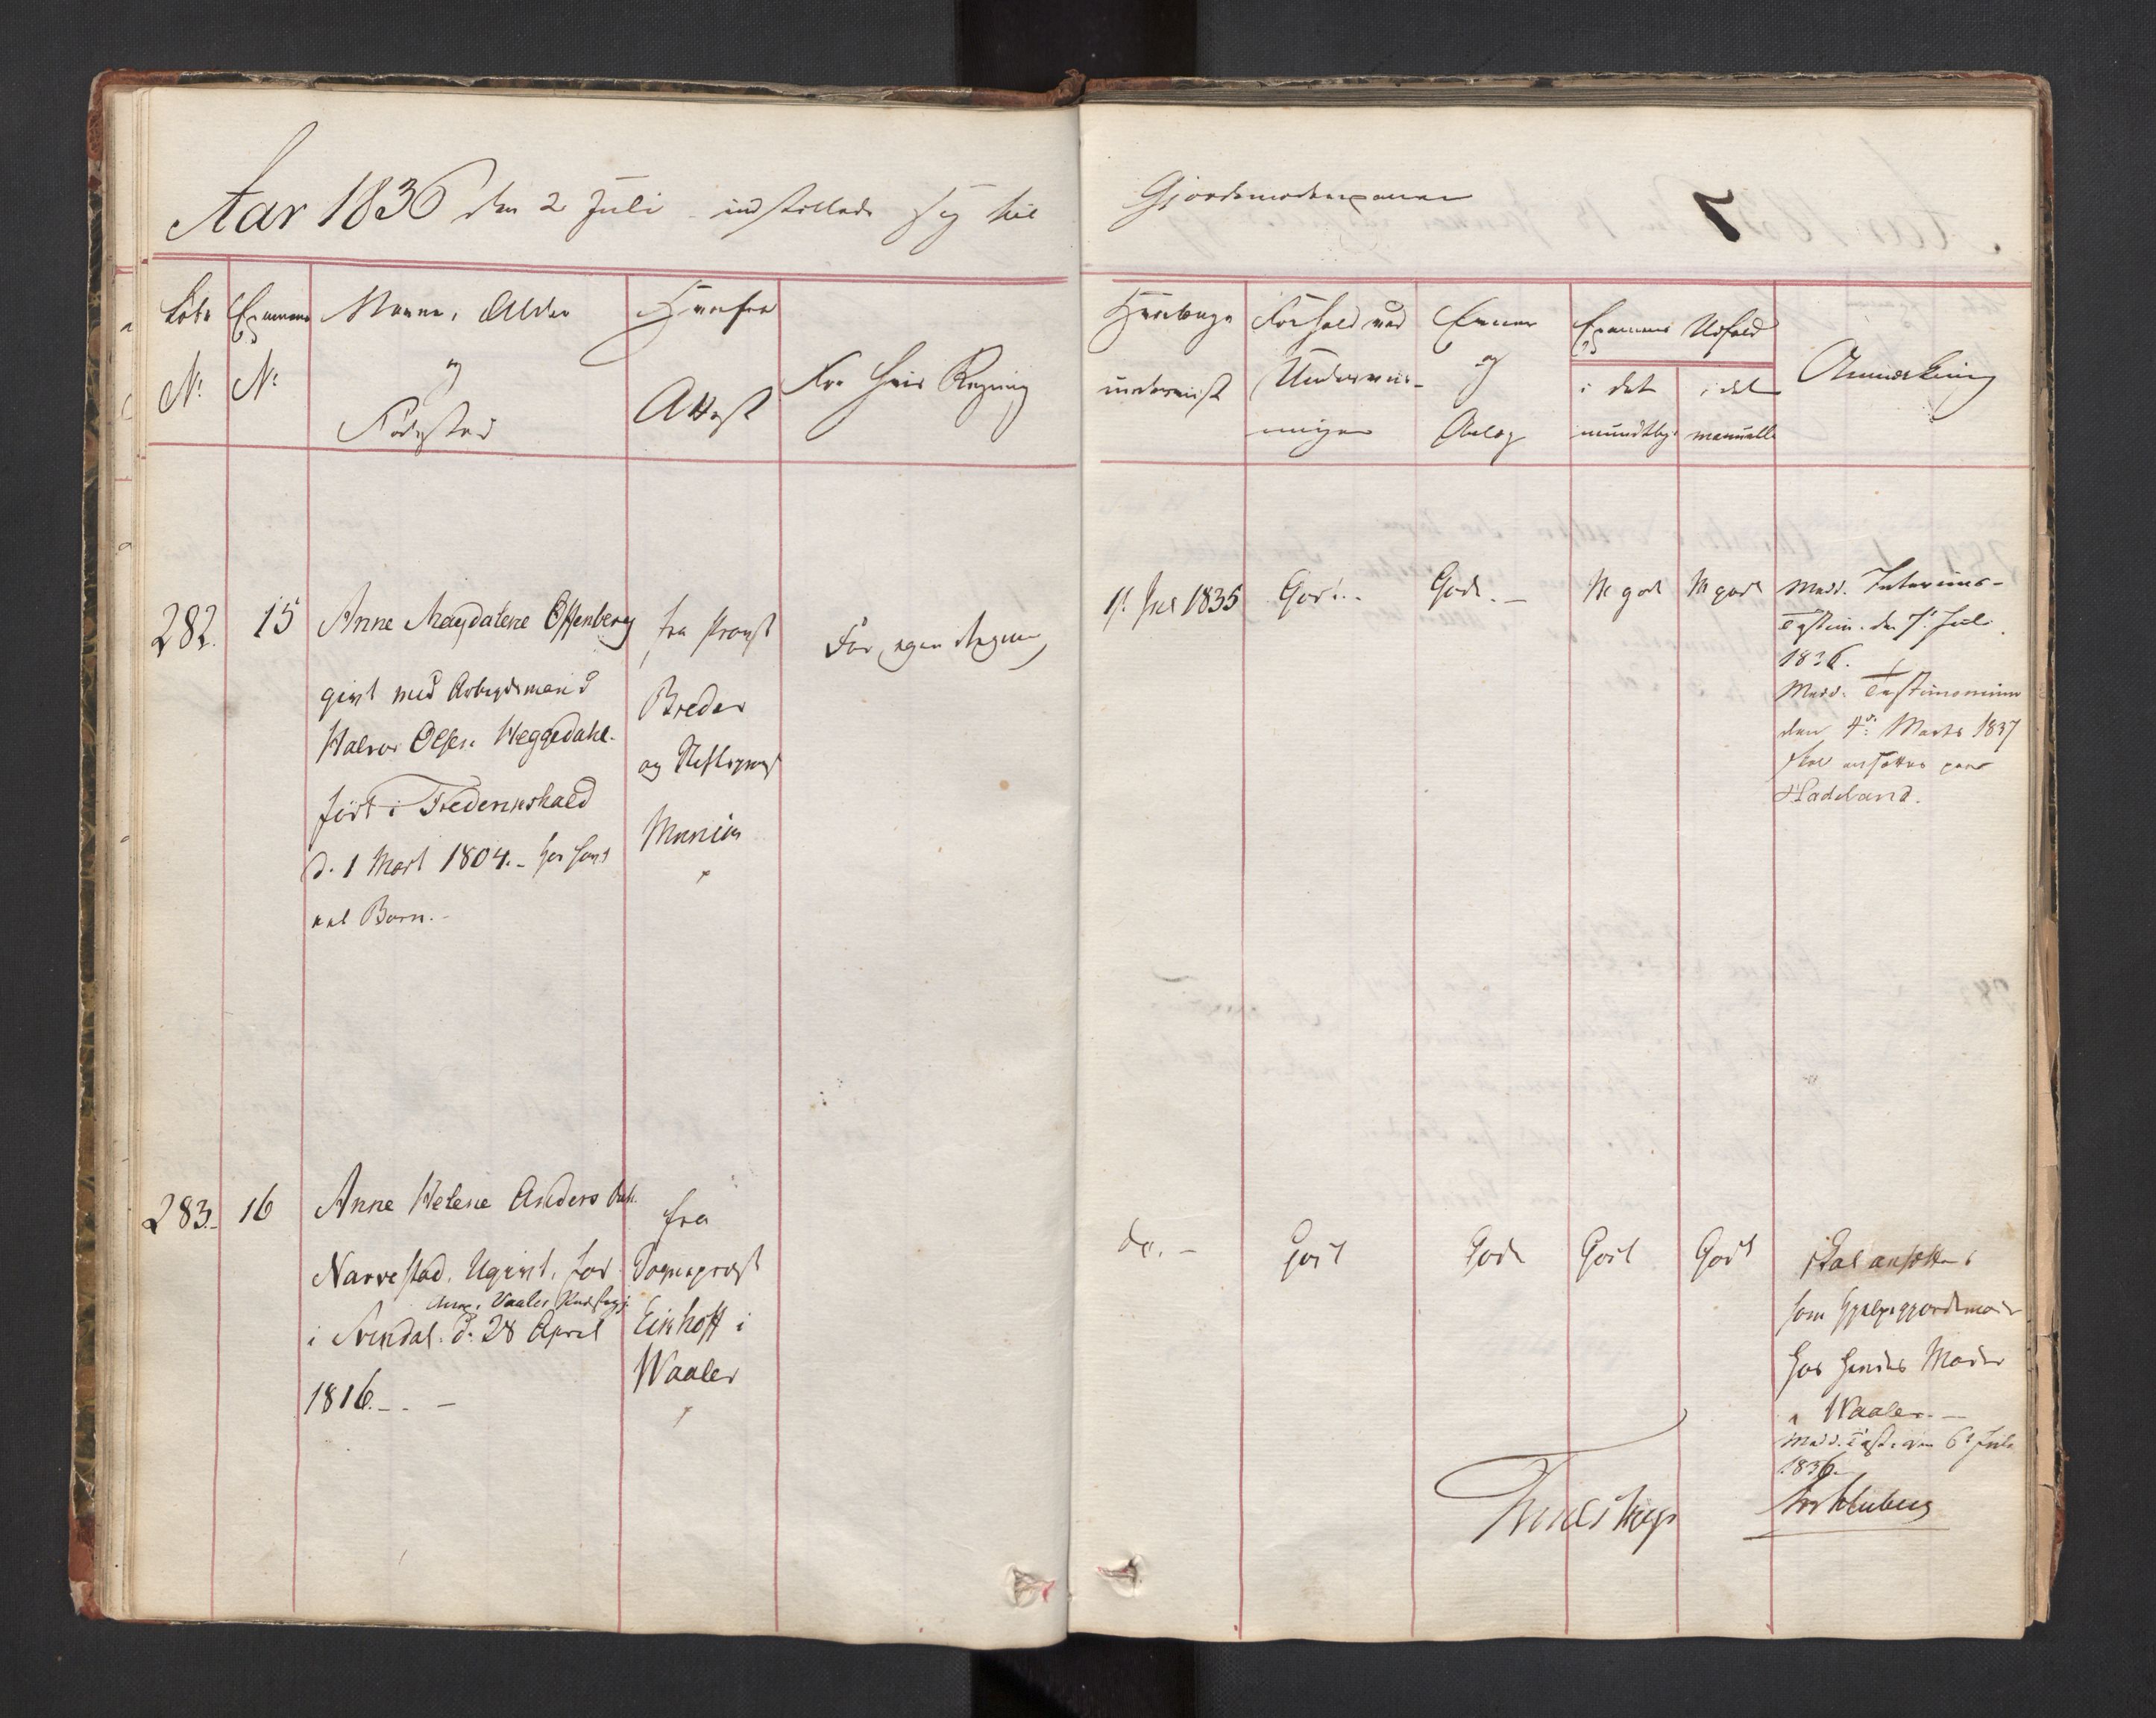 Aar 1836 den 2 Juli indstillede sig til
Gjordemoderexamen
7
Løbe
N:
Examens
N:
Navn, Alder
og
Fødested
Hvorfra
Attest
For hvis Regning
Hvorlænge
underviist
Forhold ved
Underviis-
ningen
Evner
og
Anlæg
Examens Udfald
i det
mundtlige
i det
manuelle
Anmærkning
282.
15
Anne Magdalene Offenberg
givt med Arbeidsmand
Halvor Olsen Heggedahl.
født i Frederikshald
d. 1 Mart 1804. - har havt
eet Barn. -
fra Provst
Breder
og Stiftsprovst
Munch
For egen Regning
1st Jul 1835
Godt. -
Gode. -
M godt
M godt
Medd. Interims-
Testim. den 7. Juli
1836.
Medd. Testimonium
den 4de Marts 1837
skal ansættes paa
Hadeland.
283.
16
Anne Helene Anders Dat.
Narvestad. Ugivt. fød
Anex i Vaaler Præstegj.
i Svindal. d. 28 April
1816. - . -
fra
Sogneprest
Einhoff i
Waaler
do. -
Godt
Gode
Godt
Godt
skal ansættes
som Hjelpegjordemoder
hos hendes Moder
i Waaler. -
Medd. Test. den 6t Juli
1836.